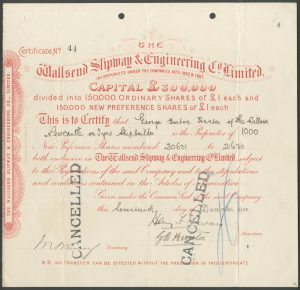 Certificate No 44
THE
Wallsend Slipway & Engineering Co. Limited.
INCORPORATED UNDER THE COMPANIES ACTS 1862 & 1867.
CAPITAL £300,000
divided into 150,000 ORDINARY SHARES of £1 each and
150,000 NEW PREFERENCE SHARES of £1 each
This is to Certify that George Burton Hunter of The Willows
Newcastle on Tyne Shipbuilder is the Proprietor of 1000
New Preference Shares numbered 20631 to 21630
both inclusive in The Wallsend Slipway & Engineering Co. Limited, subject
to the Regulations of the said Company and to the stipulations
and conditions contained in the Articles of Association
Given under the Common Seal of the said Company
this Seventeenth day of December
Directors
G B Hunter
Secretary
N.B. NO TRANSFER CAN BE EFFECTED WITHOUT THE PRODUCTION OF THIS CERTIFICATE.
CANCELLED
CANCELLED
THE WALLSEND SLIPWAY & ENGINEERING CO. LIMITED.